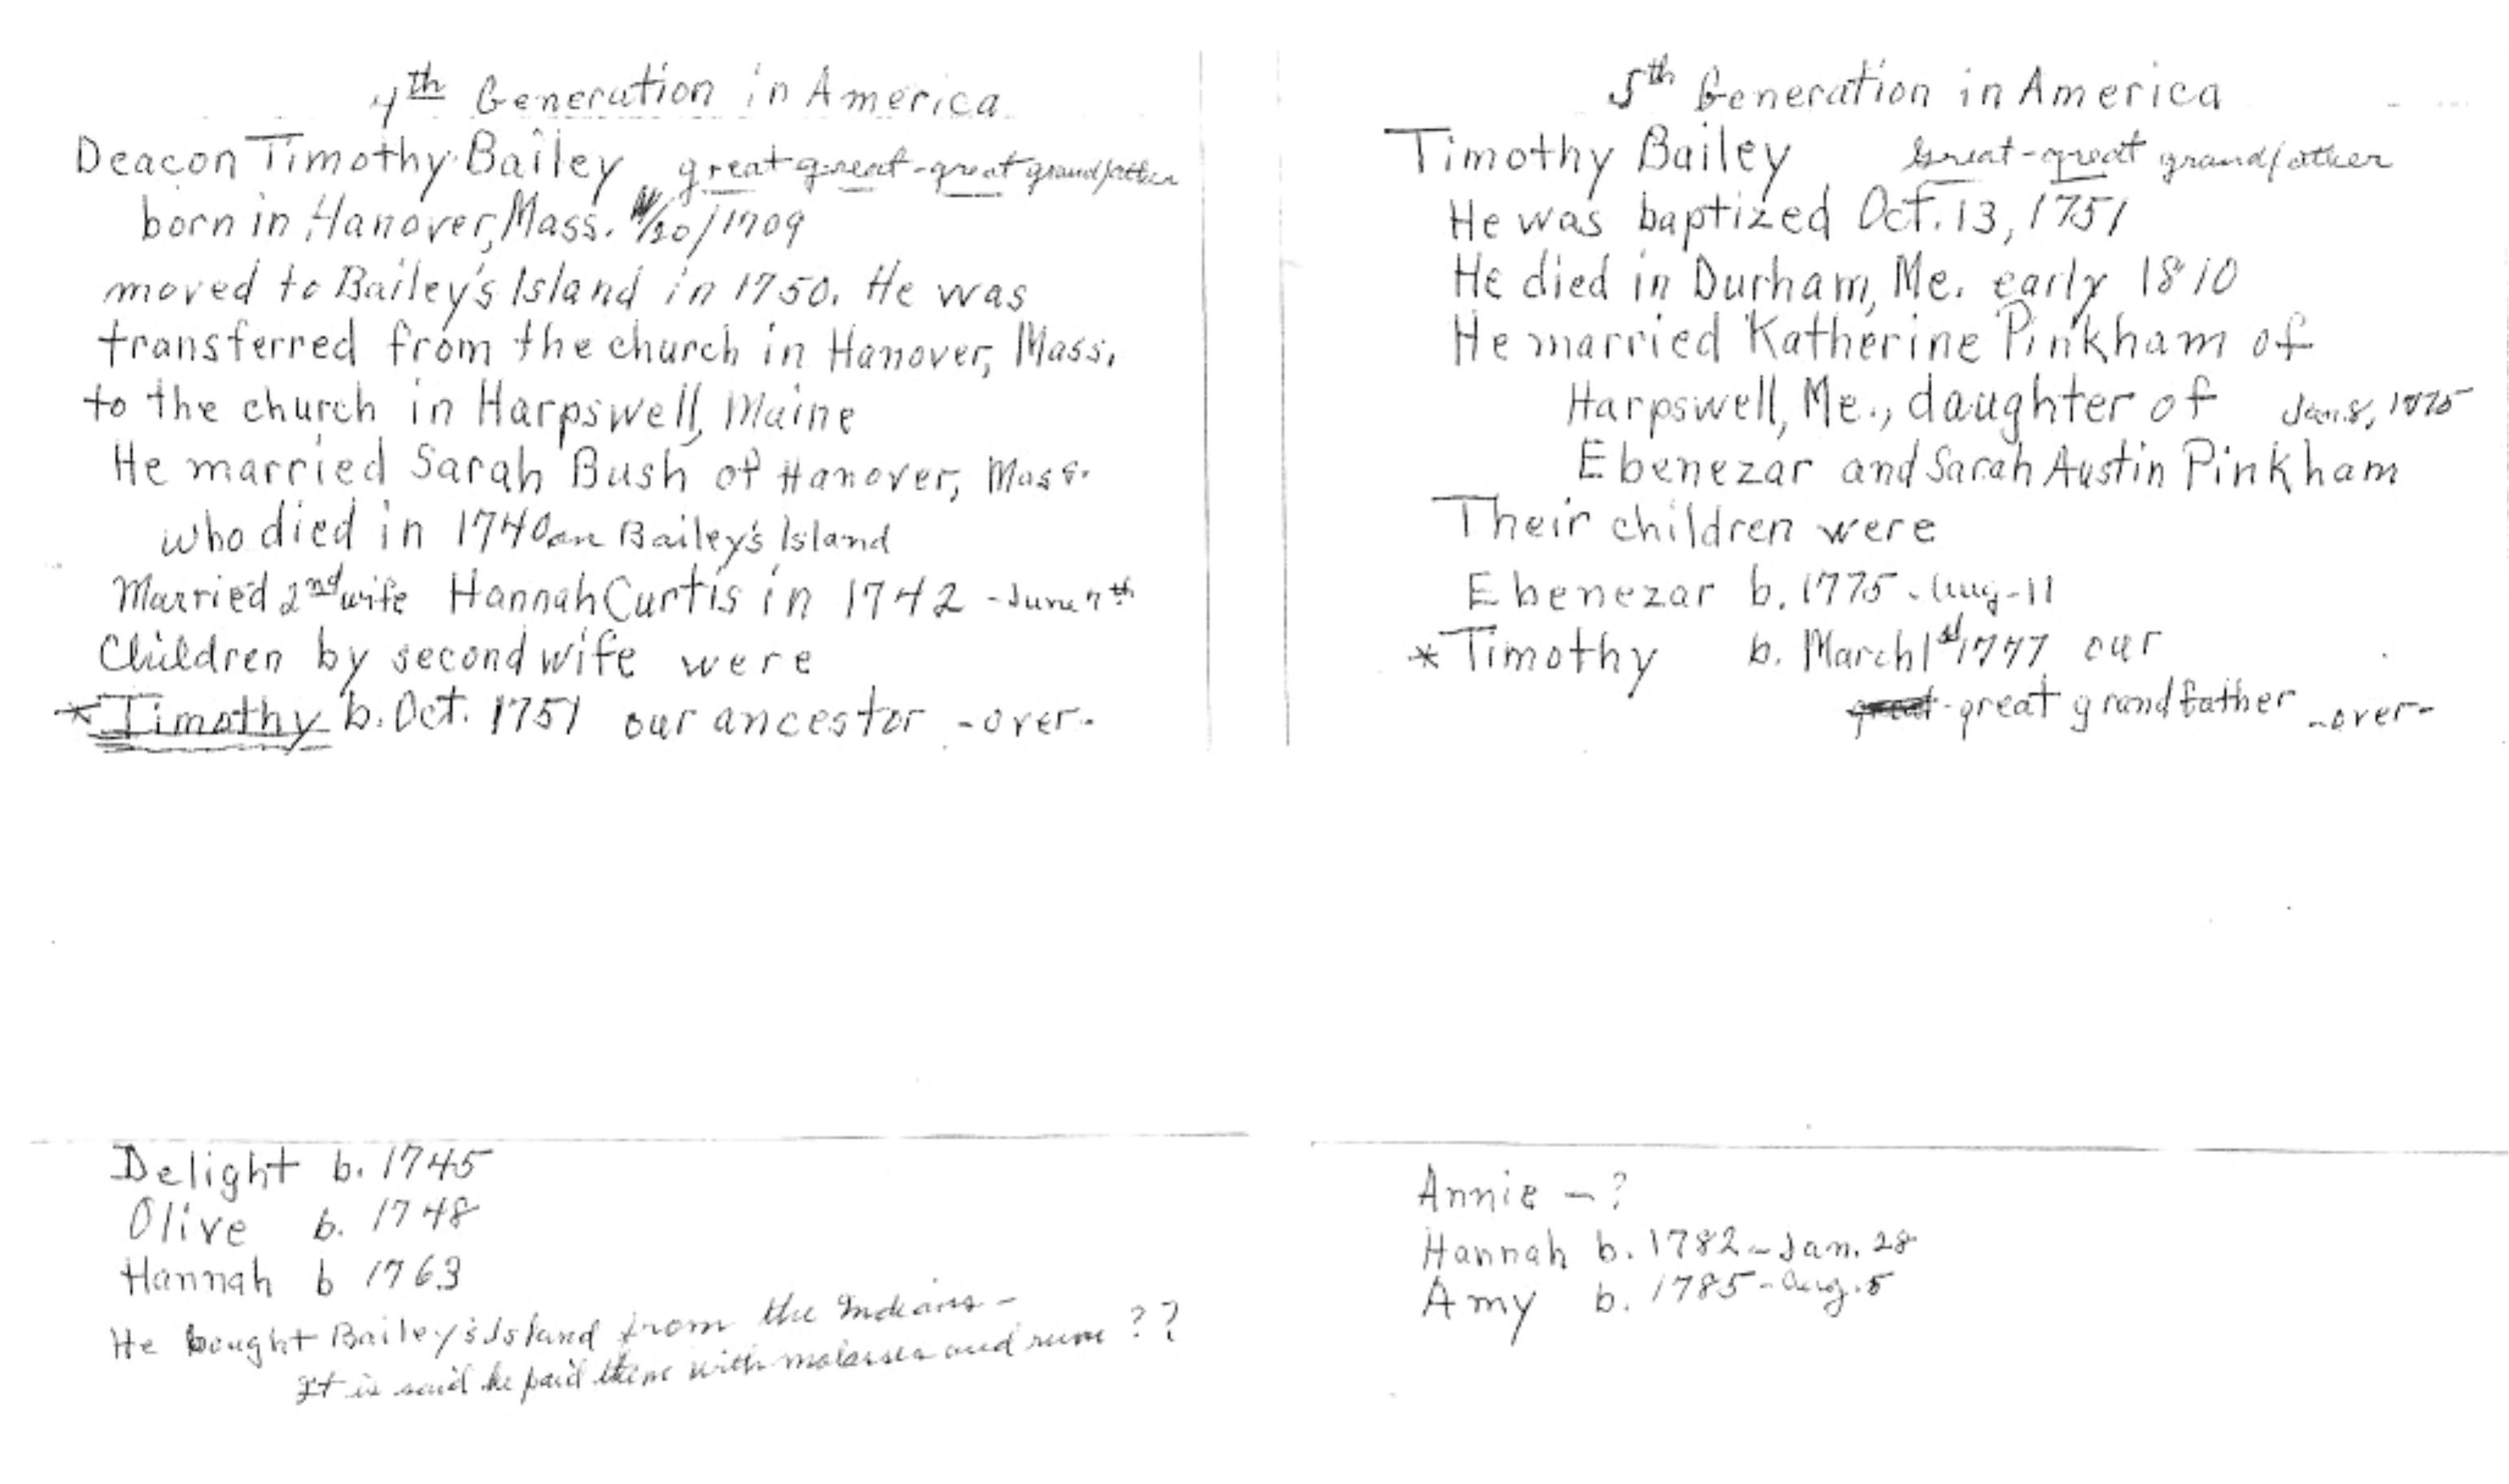 4th Generation in America
Deacon Timothy Bailey great great-great grandfather
born in Hanover, Mass. /20/1709
moved to Bailey's Island in 1750. He was
transferred from the church in Hanover, Mass.
to the church in Harpswell, Maine
He married Sarah Bush of Hanover, Mass.
who died in 1740 on Bailey's Island
Married 2nd wife Hannah Curtis in 1742 - June 7th
Children by second wife were
* Timothy b. Oct. 1751 our ancestor - over -
Delight b. 1745
Olive b. 1748
Hannah b 1763
He bought Bailey's Island from the Indians -
It is said he paid them with molasses and rum ??
5th Generation in America
Timothy Bailey Great-great grandfather
He was baptized Oct. 13, 1751
He died in Durham, Me. early 1810
He married Katherine Pinkham of
Harpswell, Me., daughter of Jan. 8,
Ebenezar and Sarah Austin Pinkham
Their children were
Ebenezar b. 1775 - Aug - 11
* Timothy b. March 1st 1777 our
- great grandfather - over -
Annie - ?
Hannah b. 1782 - Jan. 28
Amy b. 1785 - Aug. 5